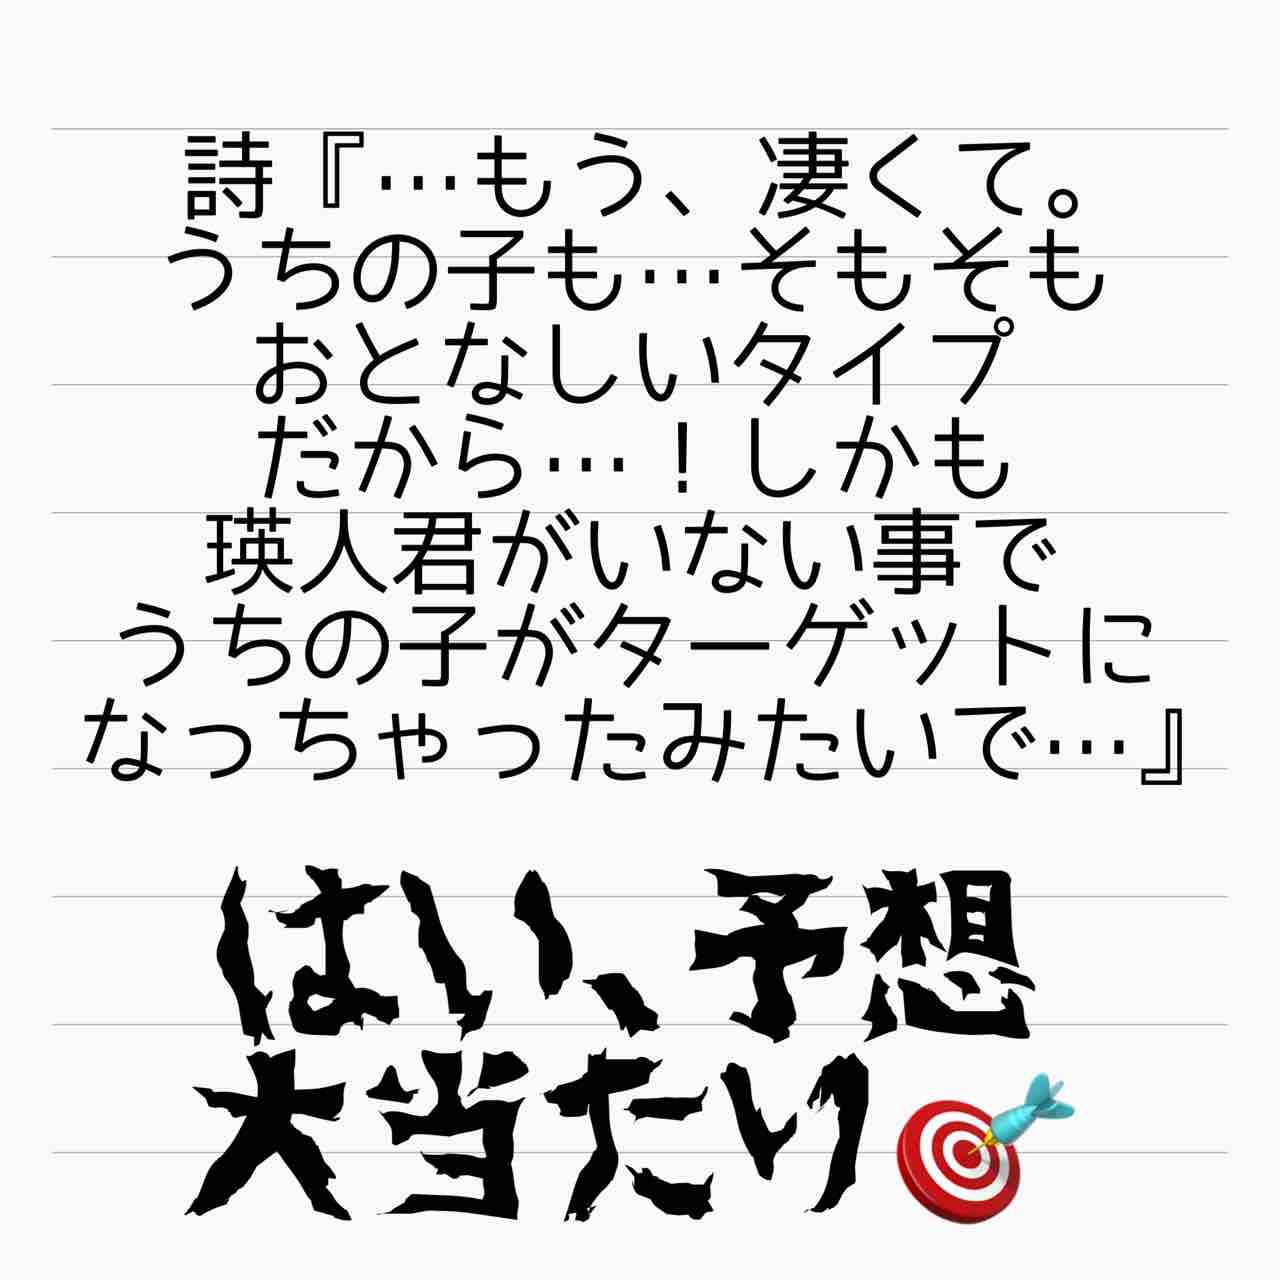 詩『…もう、凄くて。
うちの子も…そもそも
おとなしいタイプ
だから…！しかも
瑛人君がいない事で
うちの子がターゲットに
なっちゃったみたいで…』
はい、予想
大当たり🎯